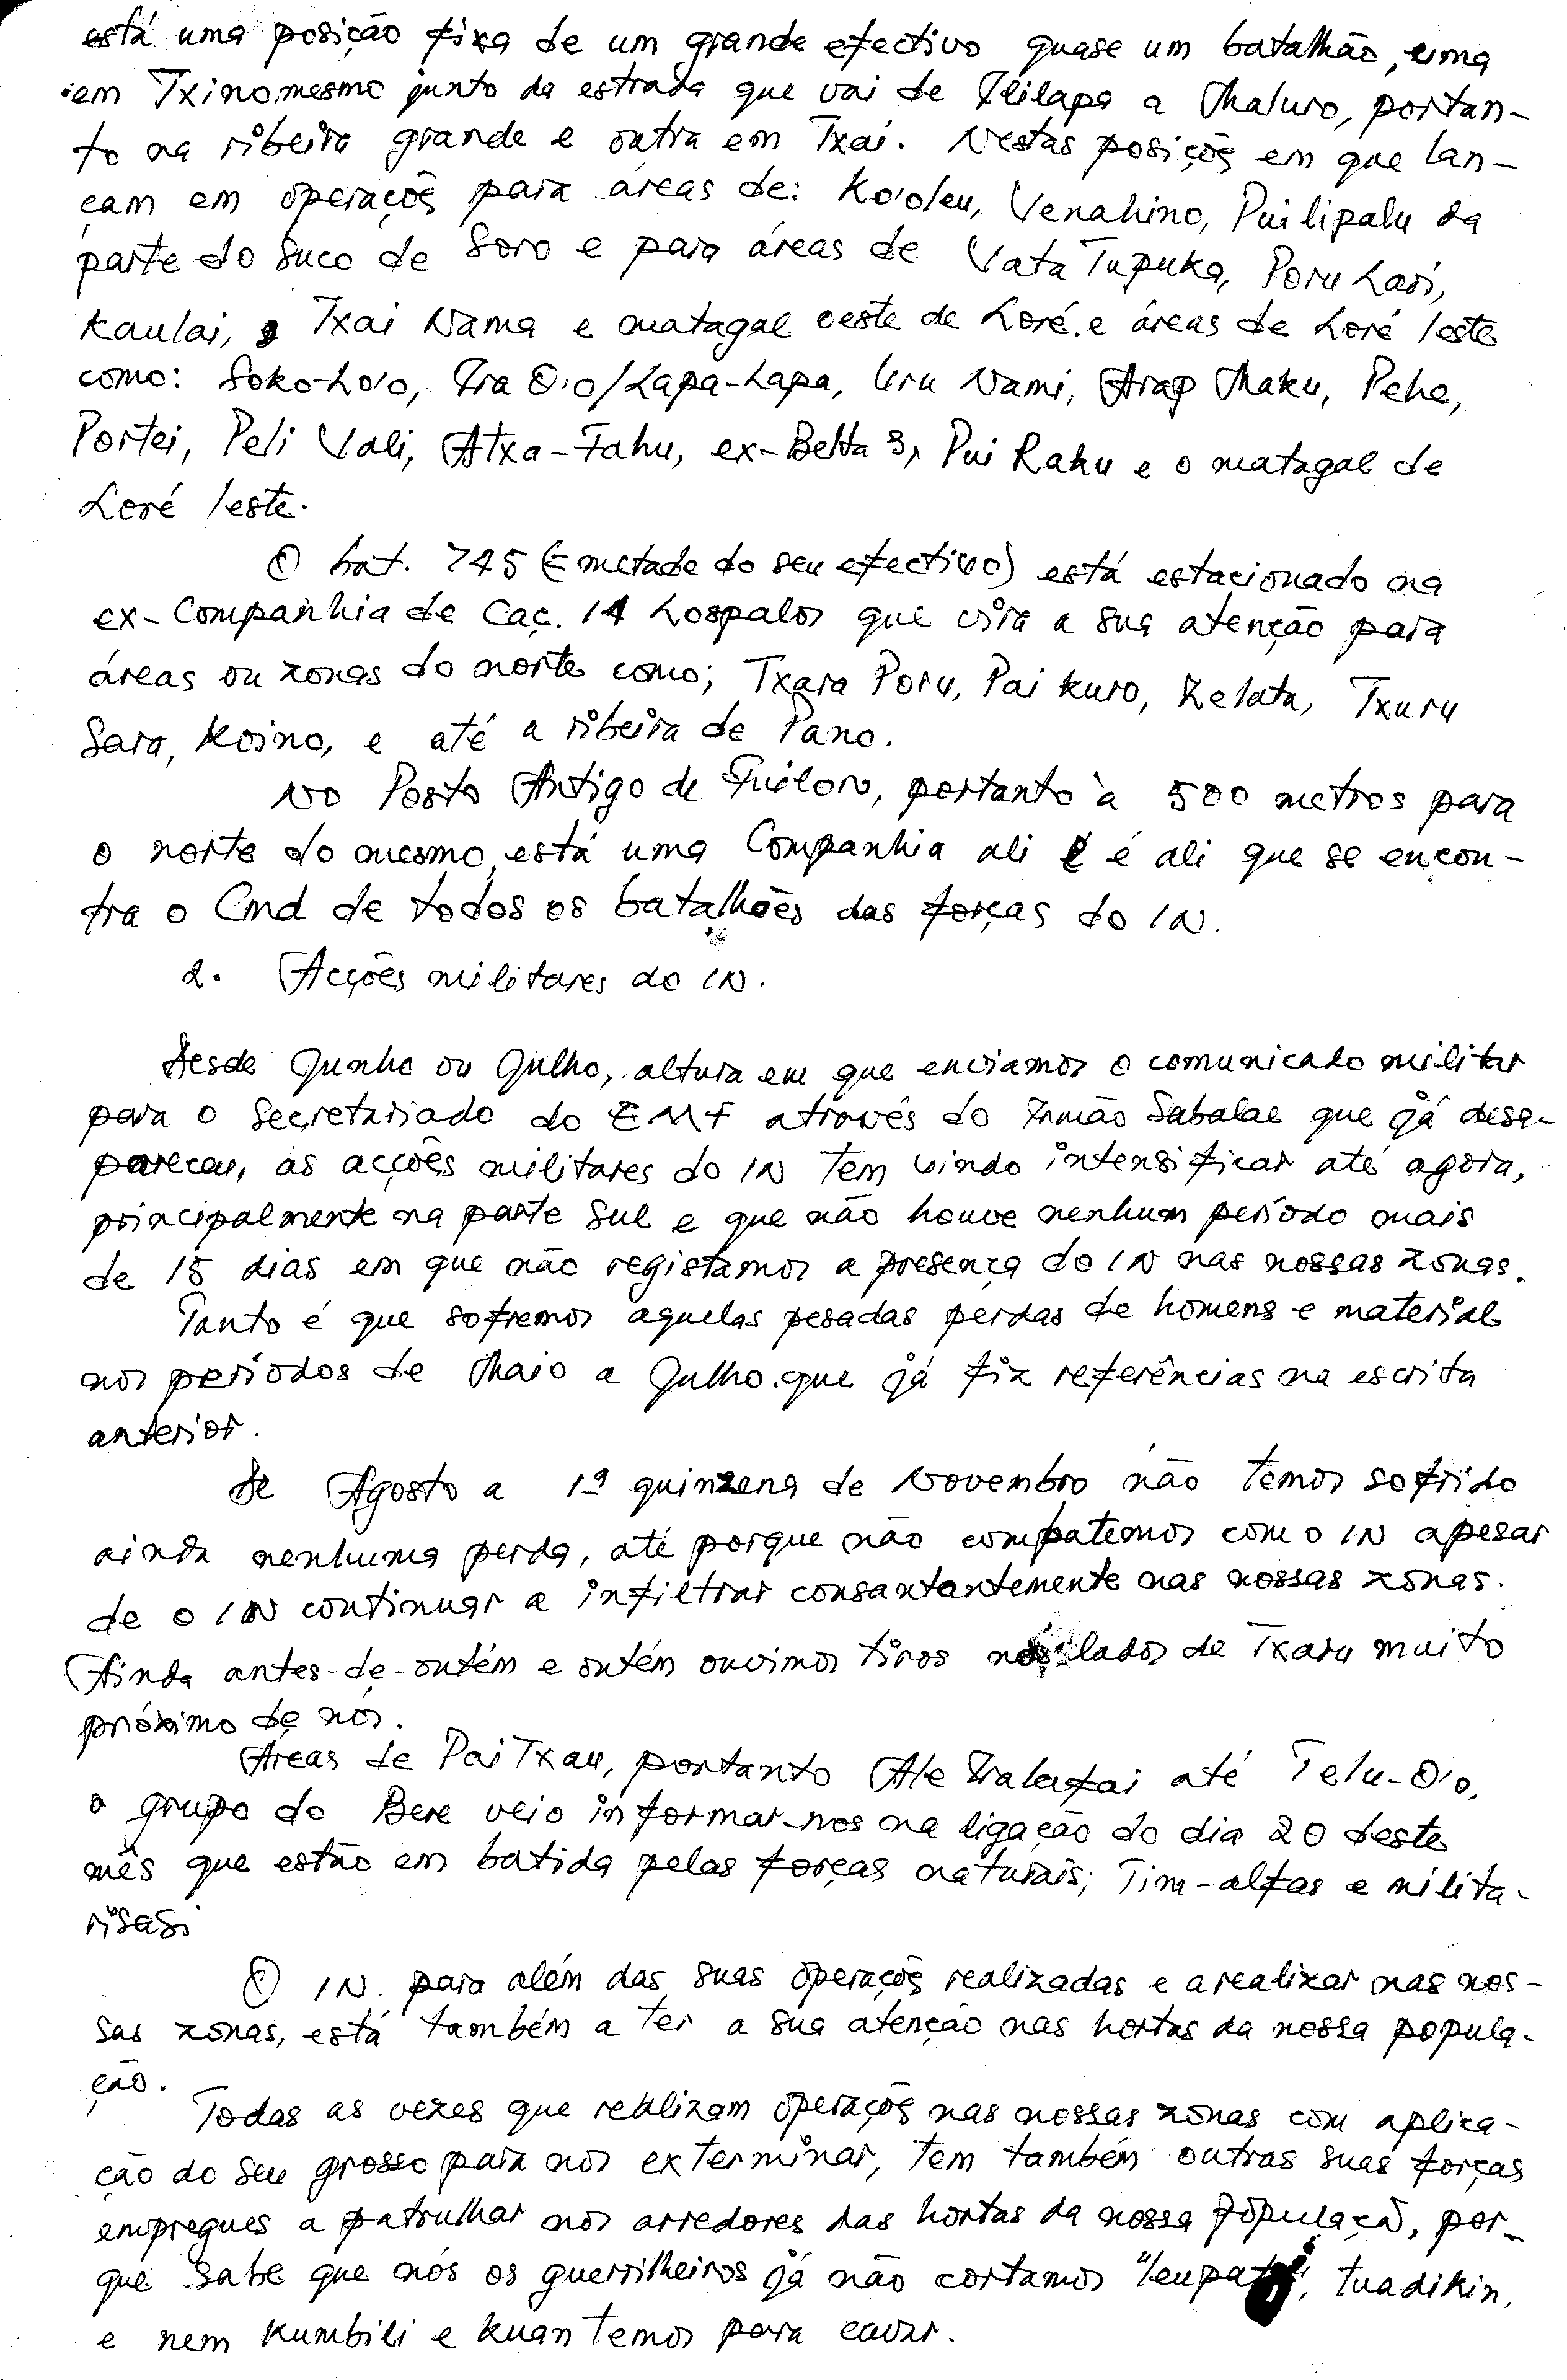 está uma posição fixa de um grande efectivo quase um batalhão, uma
em Txino mesmo junto da estrada que vai de Ililapa a Maluro, portan-
to na ribeira grande e outra em Txai. Nestas posições em que lan-
çam em operações para áreas de: Ko'oleu, Venahino, Puilipalu da
parte do Suco de Soro e para áreas de Vata Tupuka, Poru Lari,
Kaulai, Txai Nama e matagal oeste de Loré e áreas de Loré leste
como: Soko-Lo'o, Ira O'o/Lapa-Lapa, Uru Nami, Arap Maku, Pehe,
Portei, Peli Vali, Atxa-Fahu, ex-Belta 3, Pui Raku e o matagal de
Loré leste.
O bat. 745 (± metade do seu efectivo) está estacionado na
ex-Companhia de Caç. 14 Lospalos que vira a sua atenção para
áreas ou zonas do norte como; Txara Poru, Pai Kuro, Zelata, Txuru
Sara, Koino, e até a ribeira de Pano.
No Posto Antigo de Fuiloro, portanto à 500 metros para
o norte do mesmo, está uma Companhia ali e é ali que se encon-
tra o Cmd de todos os batalhões das forças do IN.
2. Acções militares do IN.
Desde Junho ou Julho, altura em que enviamos o comunicado militar
para o Secretariado do EMF através do Irmão Sabalae que já desa-
pareceu, as acções militares do IN tem vindo intensificar até agora,
principalmente na parte Sul e que não houve nenhum período mais
de 15 dias em que não registamos a presença do IN nas nossas zonas.
Tanto é que sofremos aquelas pesadas perdas de homens e material
nos períodos de Maio a Julho que já fiz referências na escrita
anterior.
De Agosto a 1ª quinzena de Novembro não temos sofrido
ainda nenhuma perda, até porque não compatemos com o IN apesar
de o IN continuar a infiltrar consantantemente nas nossas zonas.
Ainda antes-de-ontém e ontém ouvimos tiros nos lados de Txaru muito
próximo de nós.
Áreas de PaiTxau, portanto Ale Iralafai até Telu-O'o,
o grupo do Bere veio informar-nos na ligação do dia 20 deste
mês que estão em batida pelas forças naturais; Tim-alfas e milita-
risasi
O IN. para além das suas operações realizadas e a realizar nas nos-
sas zonas, está também a ter a sua atenção nas hortas da nossa popula-
ção.
Todas as vezes que realizam operações nas nossas zonas com aplica-
ção do seu grosso para nos exterminar, tem também outras suas forças
empregues a patrulhar nos arredores das hortas da nossa população, por-
que sabe que nós os guerrilheiros já não cortamos tuadikin,
e nem kumbili e kuan temos para cavar.